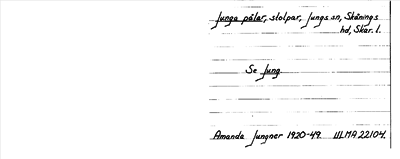 Junga pålar, stolpar, Jungs sn, Skånings
hd, Skar. l.
Se Jung.
Amanda Jungner 1920-49. ULMA 22104.